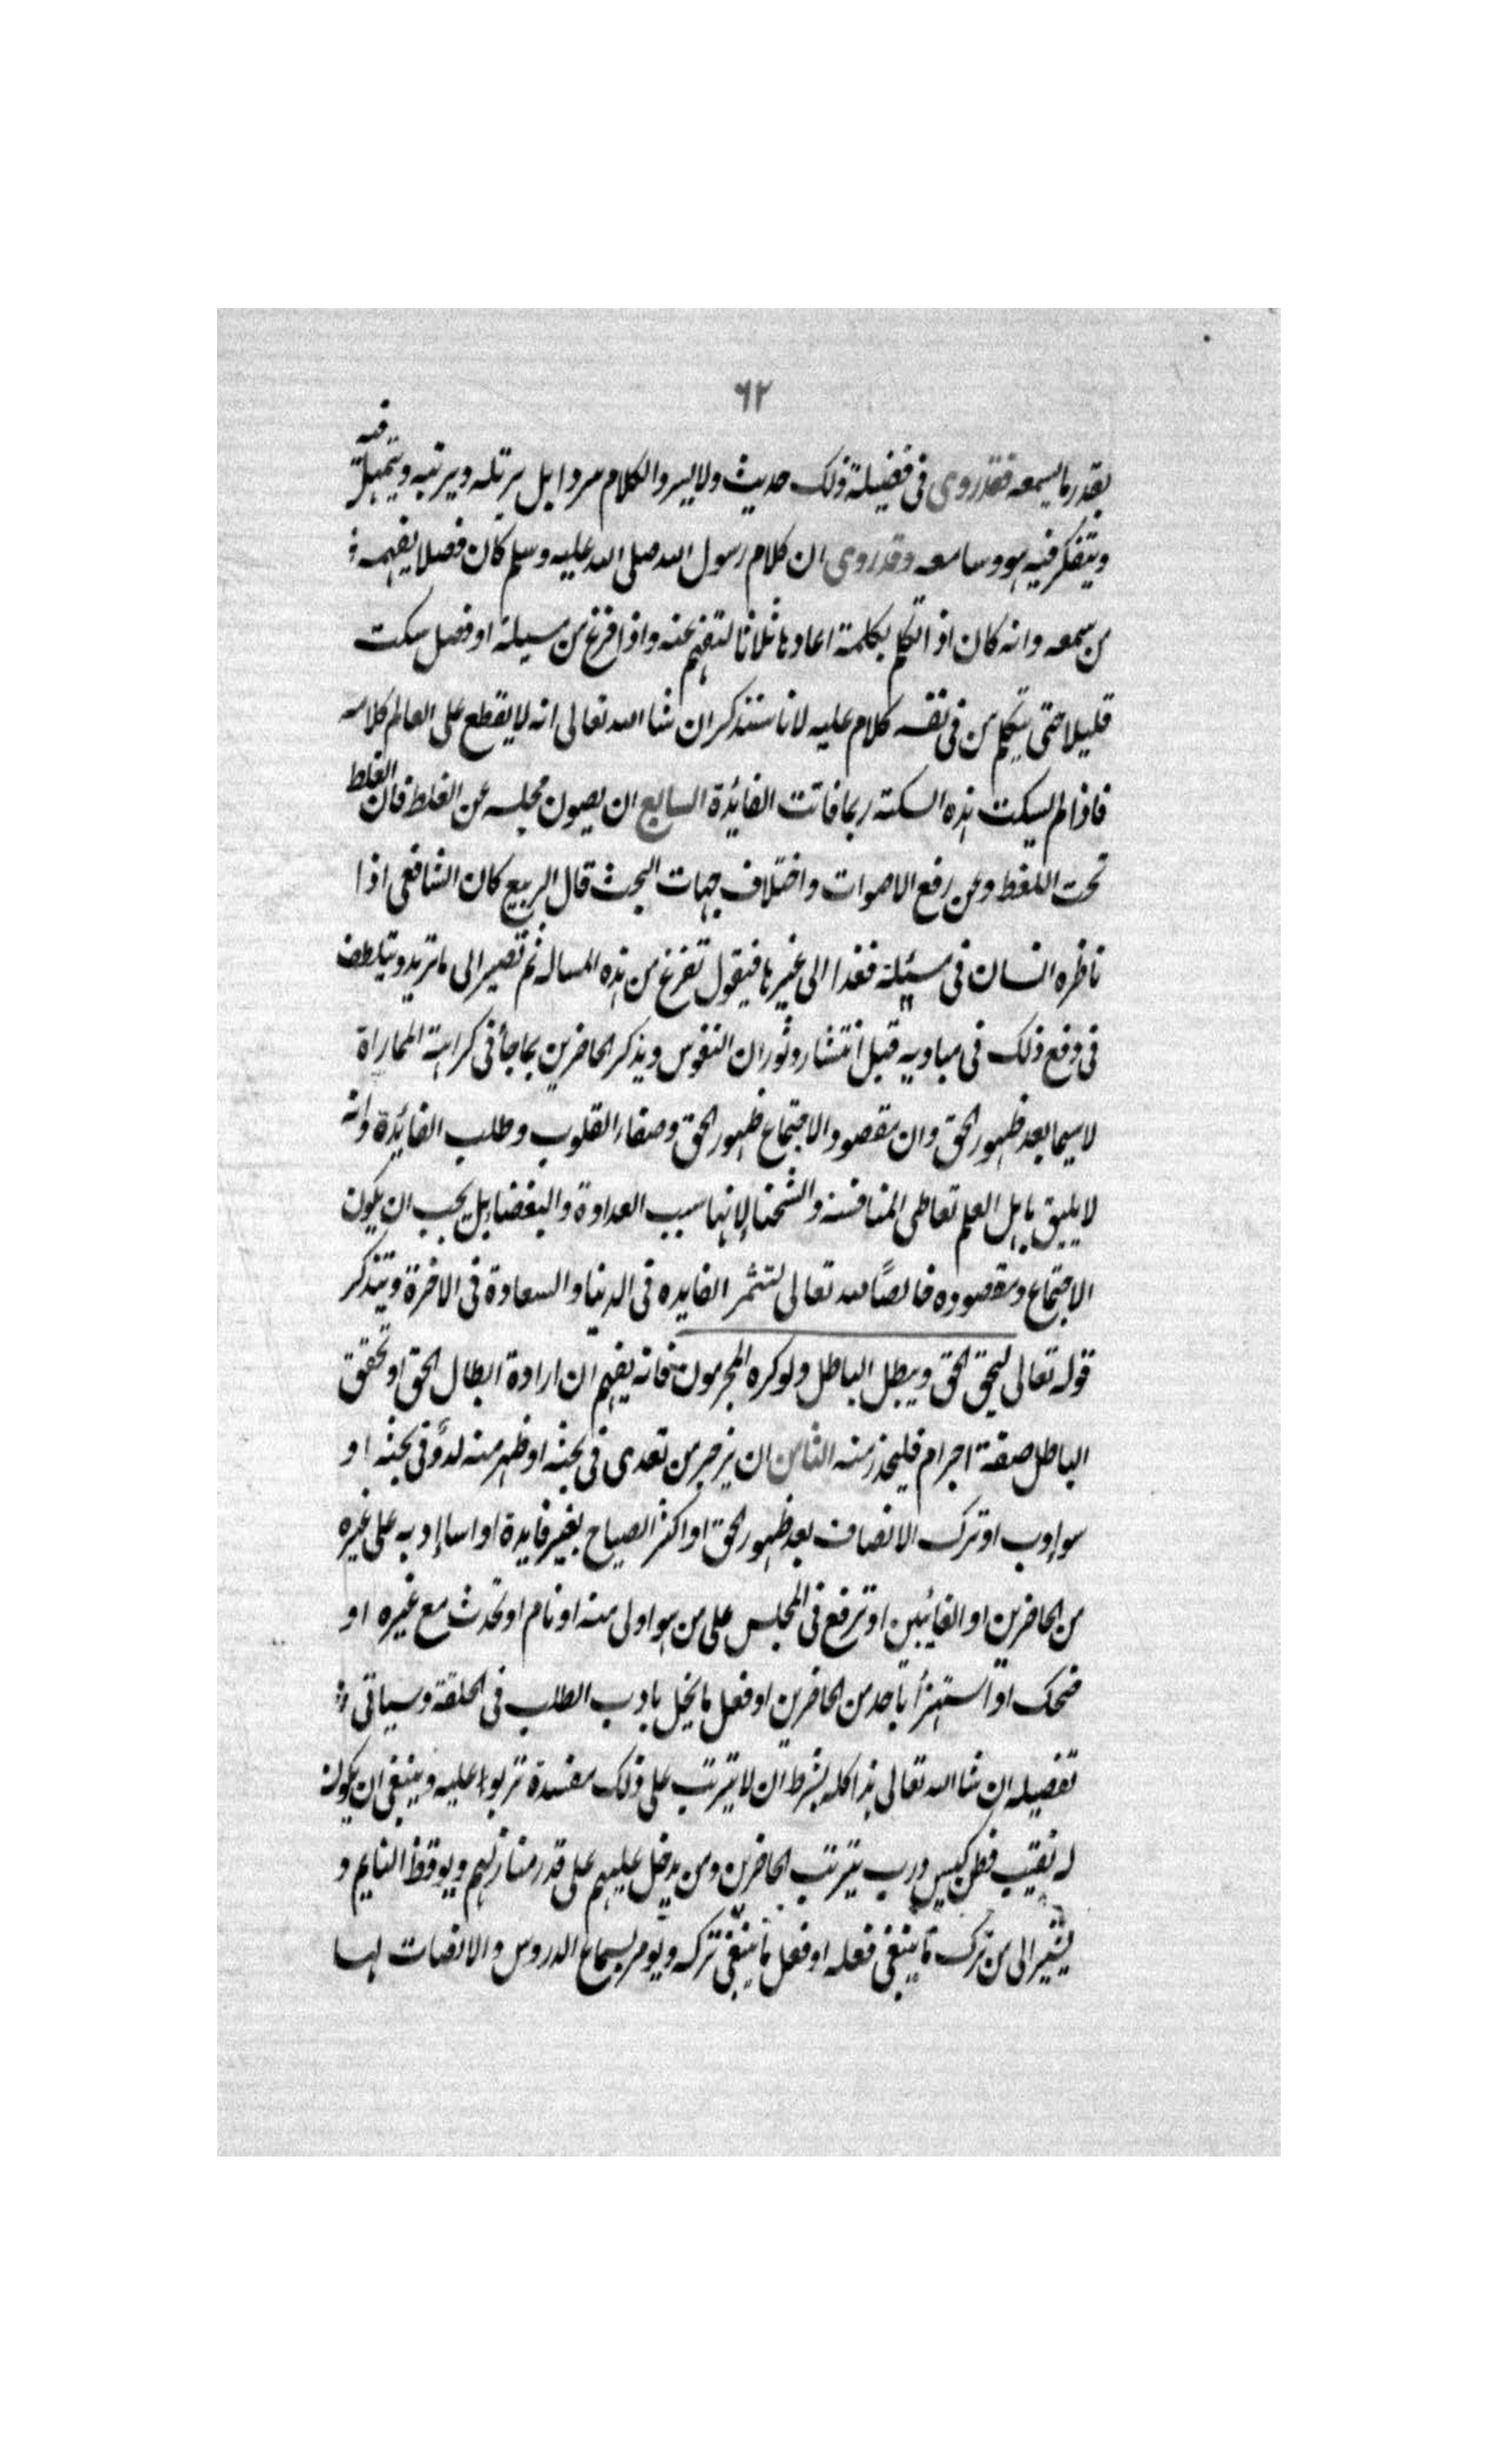 ٦٢
بقدر ما يسمعه فقد روى فى فضيلة ذلك حديث ولا يسرد الكلام سردا بل يرتله ويرتبه ويتمهل فيه
ويتفكر فيه هو وسامعه وقد روى ان كلام رسول الله صلى الله عليه وسلم كان فصلا يفهمه
من سمعه وانه كان اذا تكلم بكلمة اعادها ثلاثا لتفهم عنه واذا فرغ من مسيلة او فصل سكت
قليلا حتى يتكلم من فى نفسه كلام عليه لانا سنذكر ان شا الله تعالى انه لا يقطع على العالم كلامه
فاذا لم يسكت هذه السكتة ربما فاتت الفائدة السابع ان يصون مجلسه عن الغلط فان الغلط
تحت اللغط وعن رفع الاصوات واختلاف جهات البحث قال الربيع كان الشافعى اذا
ناظره انسان فى مسئلة فغدا الى غيرها فيقول تفرغ من هذه المساله ثم تصير الى ما تريد ويتلطف
فى دفع ذلك فى مباديه قبل انتشار وثوران النفوس ويذكر الحاضرين بما جأ فى كراهة المماراة
لا سيما بعد ظهور الحق وان مقصود الاجتماع ظهور الحق وصفاء القلوب وطلب الفائدة وانه
لا يليق باهل العلم تعاطى المنافسة والشحنا لانها سبب العداوة والبغضاء بل يجب ان يكون
الاجتماع ومقصوده خالصًا لله تعالى لتثمر الفايده فى الدنيا والسعادة فى الاخرة ويتذكر
قوله تعالى ليحق الحق ويبطل الباطل ولو كره المجرمون فانه يفهم ان ارادة ابطال الحق او تحقق
الباطل صفة اجرام فليحذر منه الثامن ان يزجر من تعدى فى بحثه او ظهر منه لدد فى بحثه او
سو ادب او ترك الانصاف بعد ظهور الحق او اكثر الصياح بغير فايدة او اسا ادبه على غيره
من الحاضرين او الغائبين او ترفع فى المجلس على من هو اولى منه او نام او تحدث مع غيره او
ضحك او استهزأ باحد من الحاضرين او فعل ما يخل بادب الطلب فى الحلقة وسياتى
تفصيله ان شا الله تعالى هذا كله بشرط ان لا يترتب على ذلك مفسدة تربوا عليه وينبغى ان يكون
له نقيب فطن كيس درب يترتب الحاضرين ومن يدخل عليهم على قدر منازلهم ويوقظ النايم و
يشير الى من ترك ما ينبغى فعله او فعل ما ينبغى تركه ويومر بسماع الدروس والانصات لها